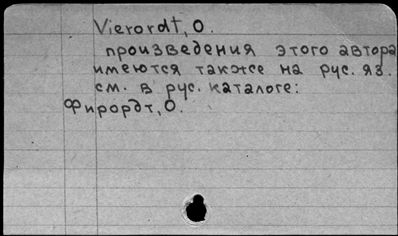 Vierordt, O.
произведения этого автора
имеются также на рус. яз.
см. в рус. каталоге:
Фирордт, О.